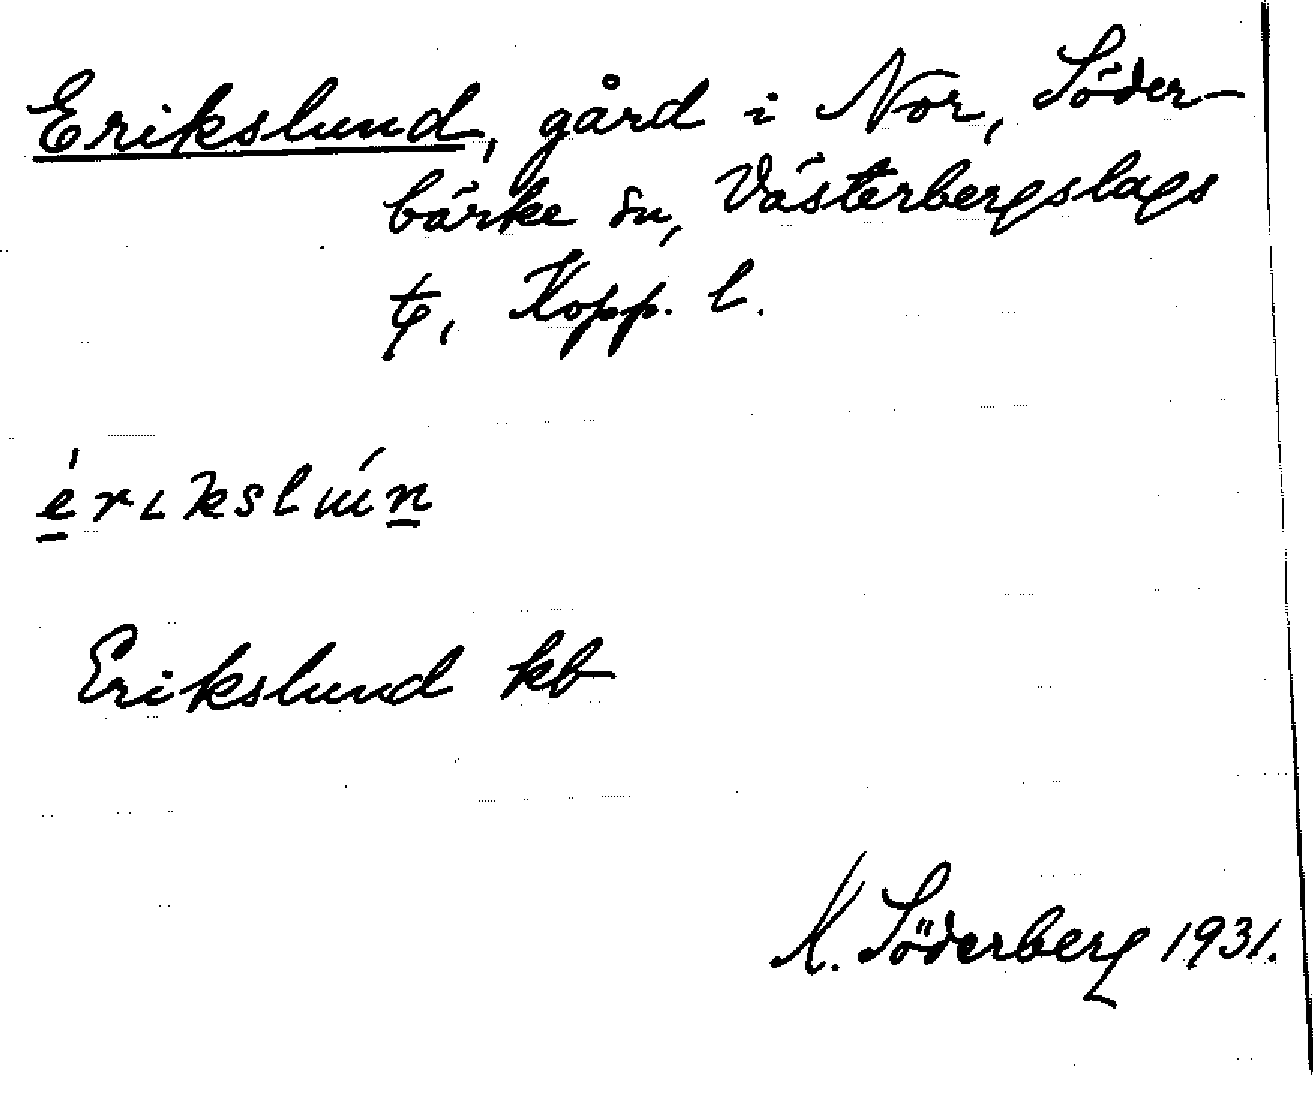 Erikslund, gård i Nor, Söder-
bärke sn, Västerbergslags
tg, Kopp. l.
erikslun
Erikslund kb
K. Söderberg 1931.